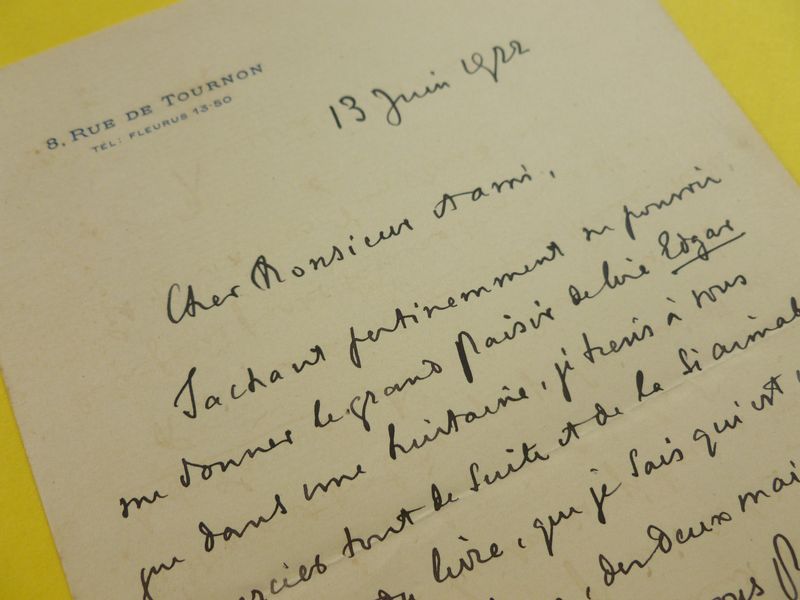 8, RUE DE TOURNON
TÉL: FLEURUS 13-50
13 Juin 1922
Cher Monsieur et ami,
Sachant pertinemment ne pouvoir
me donner le grand plaisir de lire Edgar
que dans une huitaine, je tiens à vous
remercier tout de suite et de la si aimable
livre, que je sais qui est
, des Deux mai